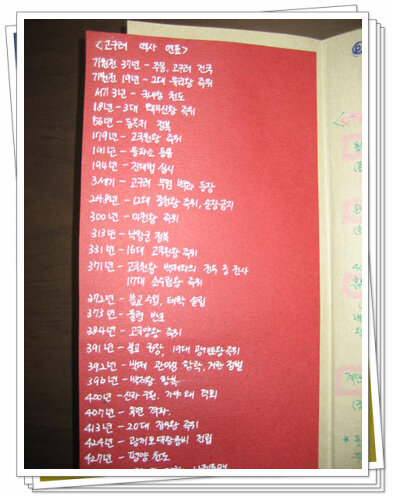 <고구려 역사 연표>
기원전 37년 - 주몽, 고구려 건국
기원전 19년 - 2대 유리왕 즉위
서기 3년 - 국내성 천도
18년 - 3대 대무신왕 즉위
56년 - 동옥저 정복
179년 - 고국천왕 즉위
191년 - 을파소 등용
194년 - 진대법 실시
3세기 - 고구려 고분 벽화 등장
248년 - 12대 중천왕 즉위, 순장금지
300년 - 미천왕 즉위
313년 - 낙랑군 정복
331년 - 16대 고국원왕 즉위
371년 - 고국원왕 백제와의 전투 중 전사
17대 소수림왕 즉위
372년 - 불교 수입, 태학 설립
373년 - 율령 반포
384년 - 고국양왕 즉위
391년 - 불교 공인, 19대 광개토왕 즉위
392년 - 백제 관미성 함락, 거란 정벌
396년 - 백제왕 항복
400년 - 신라 구원, 가야 왜 격퇴
407년 - 후연 격파.
413년 - 20대 장수왕 즉위
424년 - 광개토대왕릉비 건립
427년 - 평양 천도